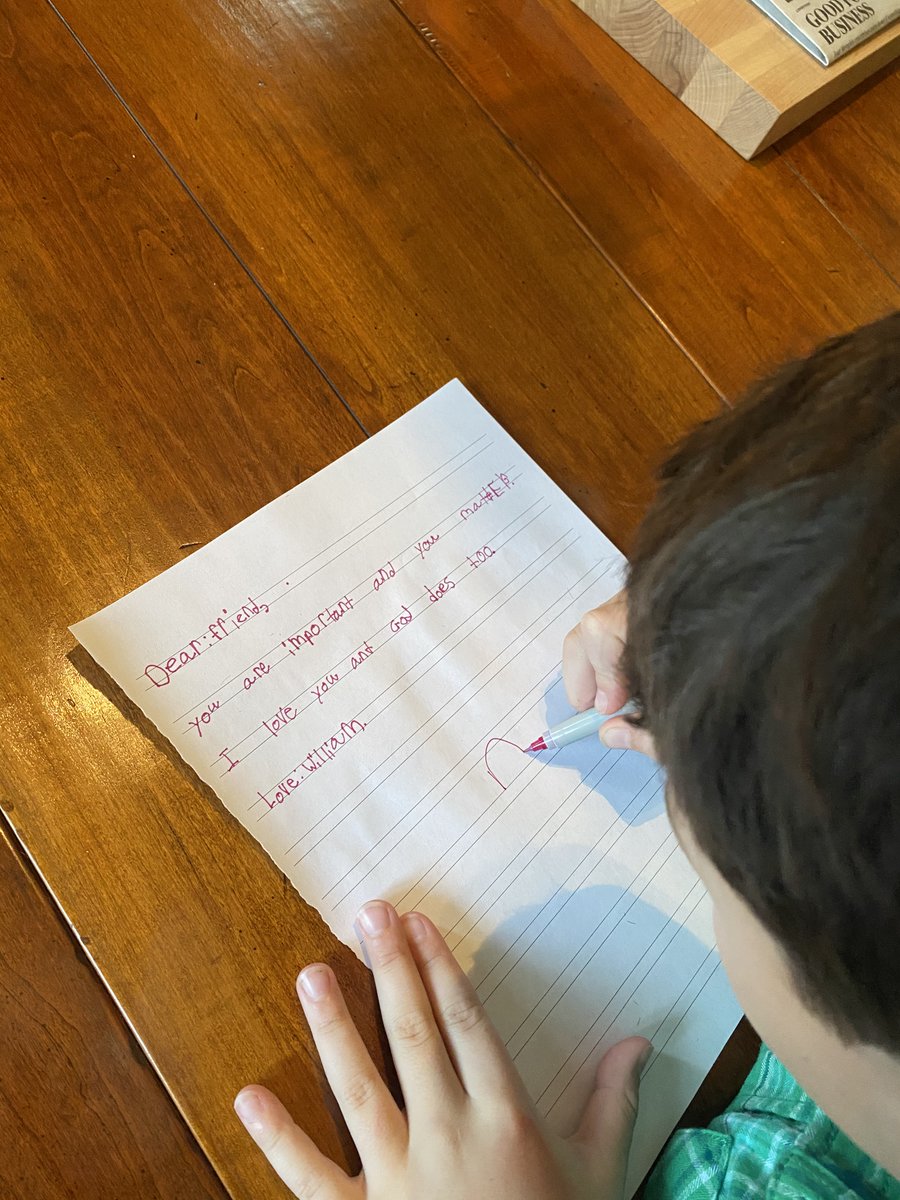 GOOD F
BUSINESS
Dear:friend,
you are important and you mattER.
I love you and God does too.
Love:William.